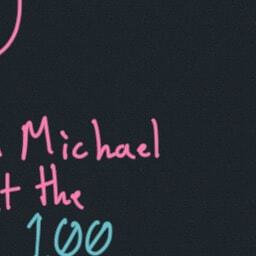 Michael
the
100